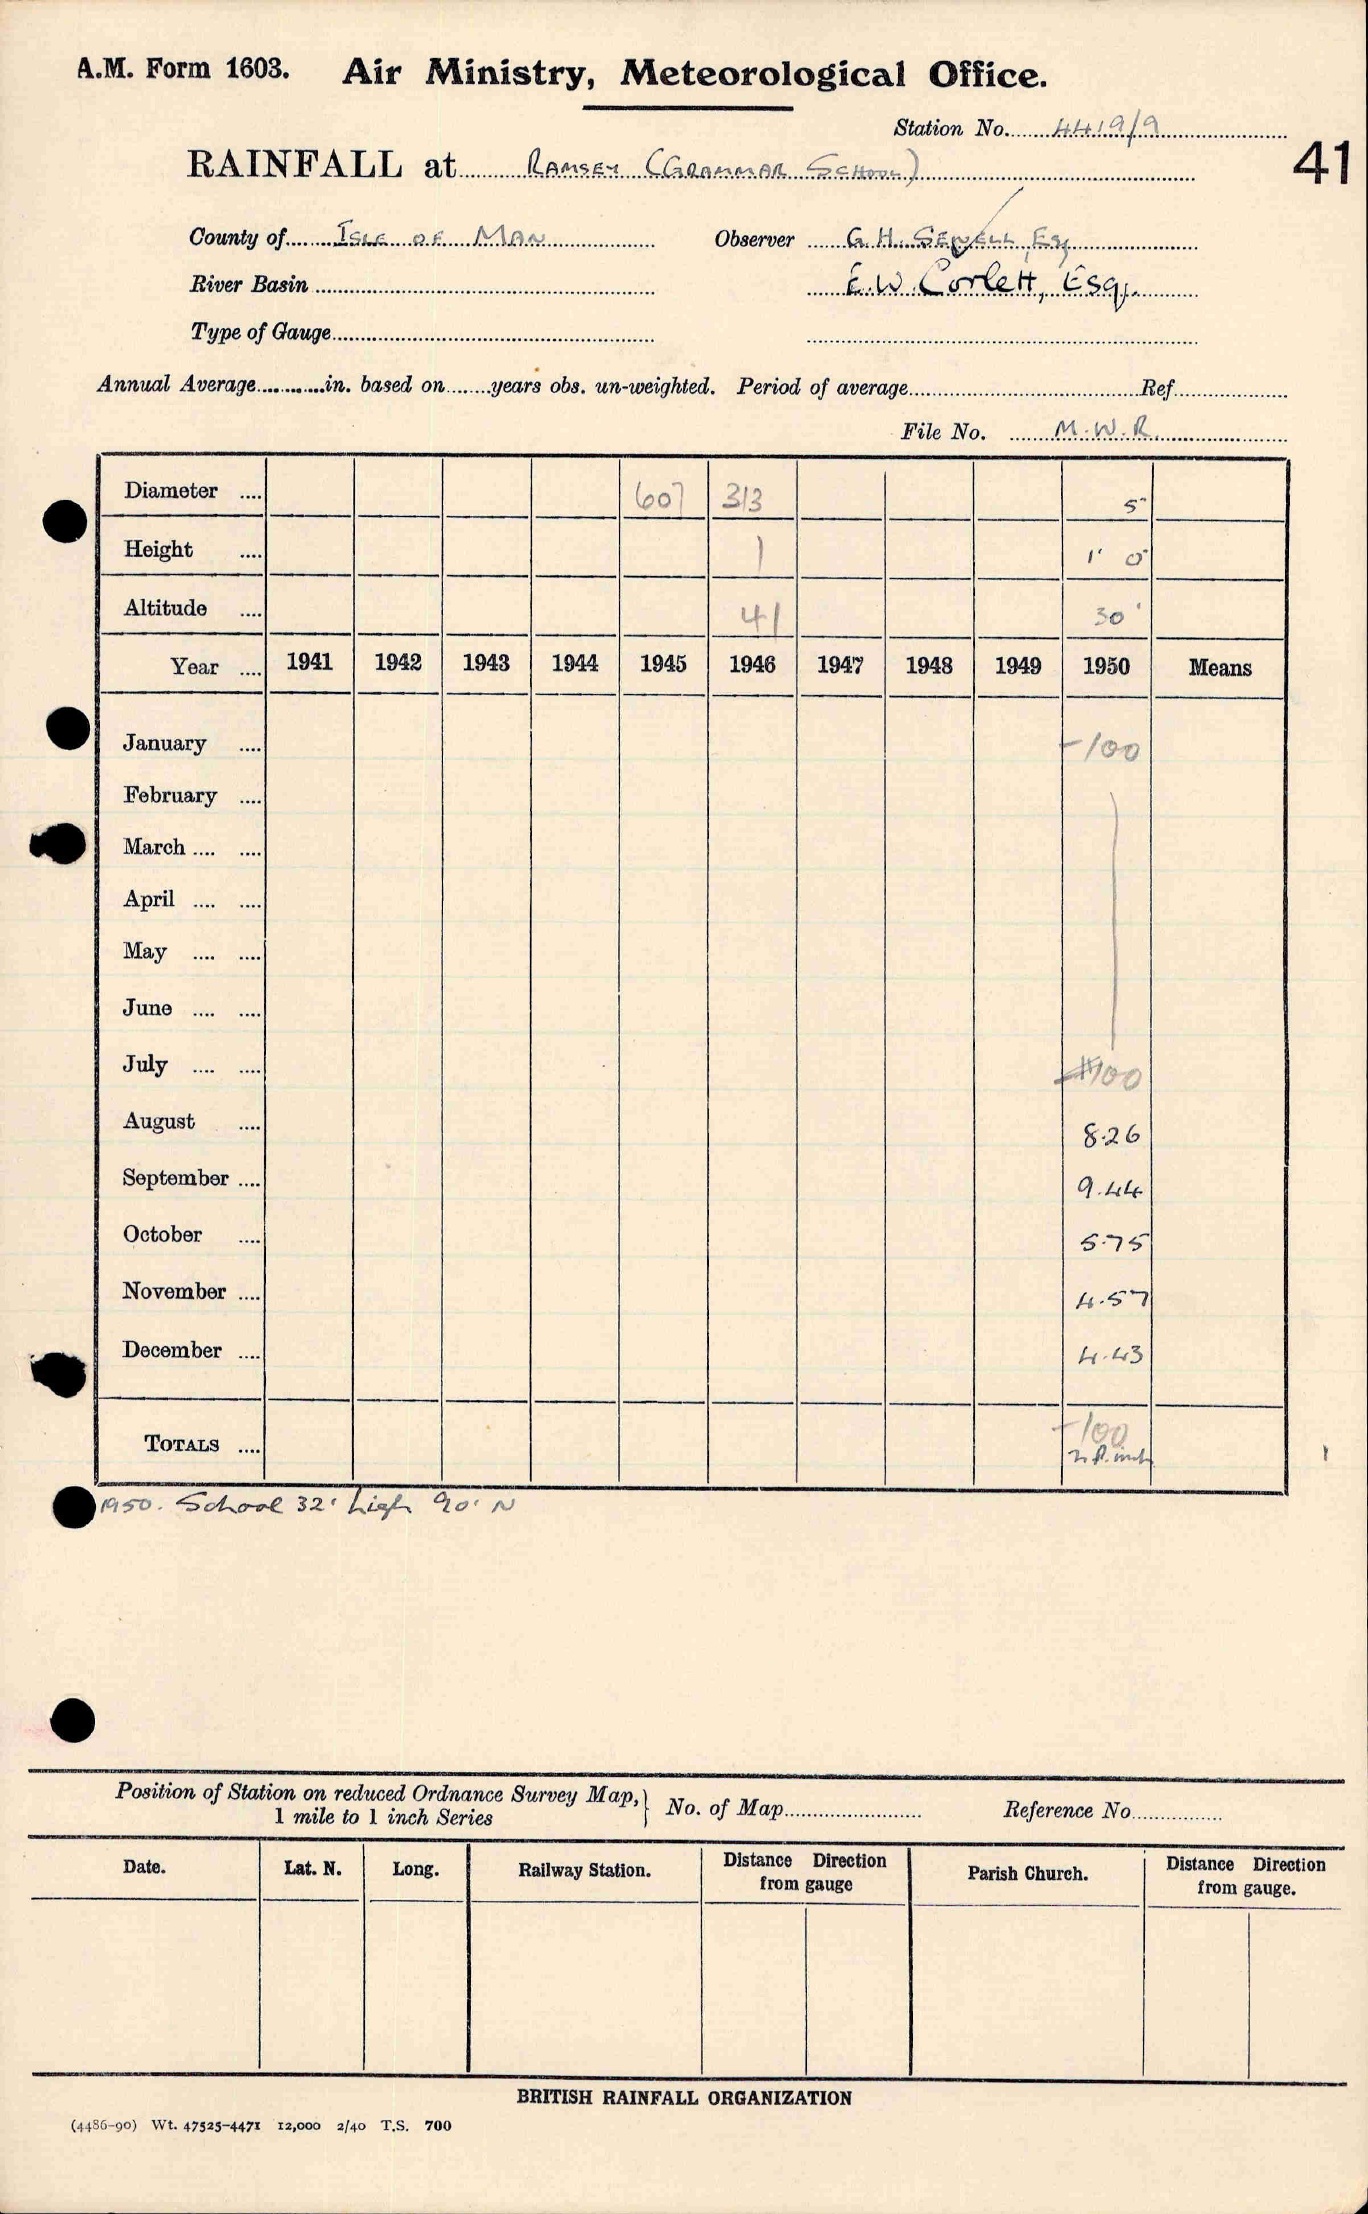 A.M. Form 1603. Air Ministry, Meteorological Office.
Station No. 4419/9
41
RAINFALL at RAMSEY (GRAMMAR SCHOOL)
County of ISLE OF MAN Observer G.H. SEWELL, Esq
River Basin E.W. Corlett, Esq.
Type of Gauge
Annual Average in. based on years obs. un-weighted. Period of average Ref
File No. M.W.R.
Diameter 607 313 5"
Height 1 1' 0"
Altitude 41 30'
Year 1941 1942 1943 1944 1945 1946 1947 1948 1949 1950 Means
January -100
February
March
April
May
June
July 100
August 8.26
September 9.44
October 5.75
November 4.57
December 4.43
TOTALS -100
1950. School 32' high 90' N
Position of Station on reduced Ordnance Survey Map, } No. of Map Reference No
1 mile to 1 inch Series
Date. Lat. N. Long. Railway Station. Distance Direction from gauge Parish Church. Distance Direction from gauge.
BRITISH RAINFALL ORGANIZATION
(4486-90) Wt. 47525-4471 12,000 2/40 T.S. 700